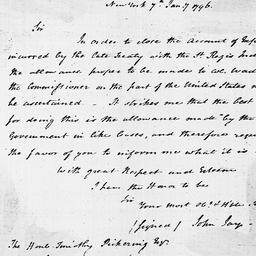 New York 7th Jany 1796.
Sir
In order to close the Account of Exp
incurred by the late Treaty with the St Regis Ind
the allowance proper to be made to Mr. Wad
the Commissioner on the part of the United States n
be ascertained - It strikes me that the best
for doing this is the allowance made by the
Government in like Cases, and therefore reque
the favor of you to inform me what it is
With great Respect and Esteem
I have the Honor to be
Sir
Your most Obt. & Hble. S
(Signed) John Jay -
The Honb. Timothy Pickering Esq.